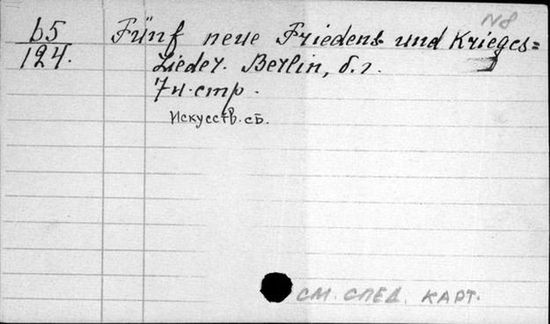 N8
65 Fünf neue Friedens und Krieges=
124. Lieder. Berlin, б.г.
7 н.стр.
Искусств. сб.
см. спец. карт.